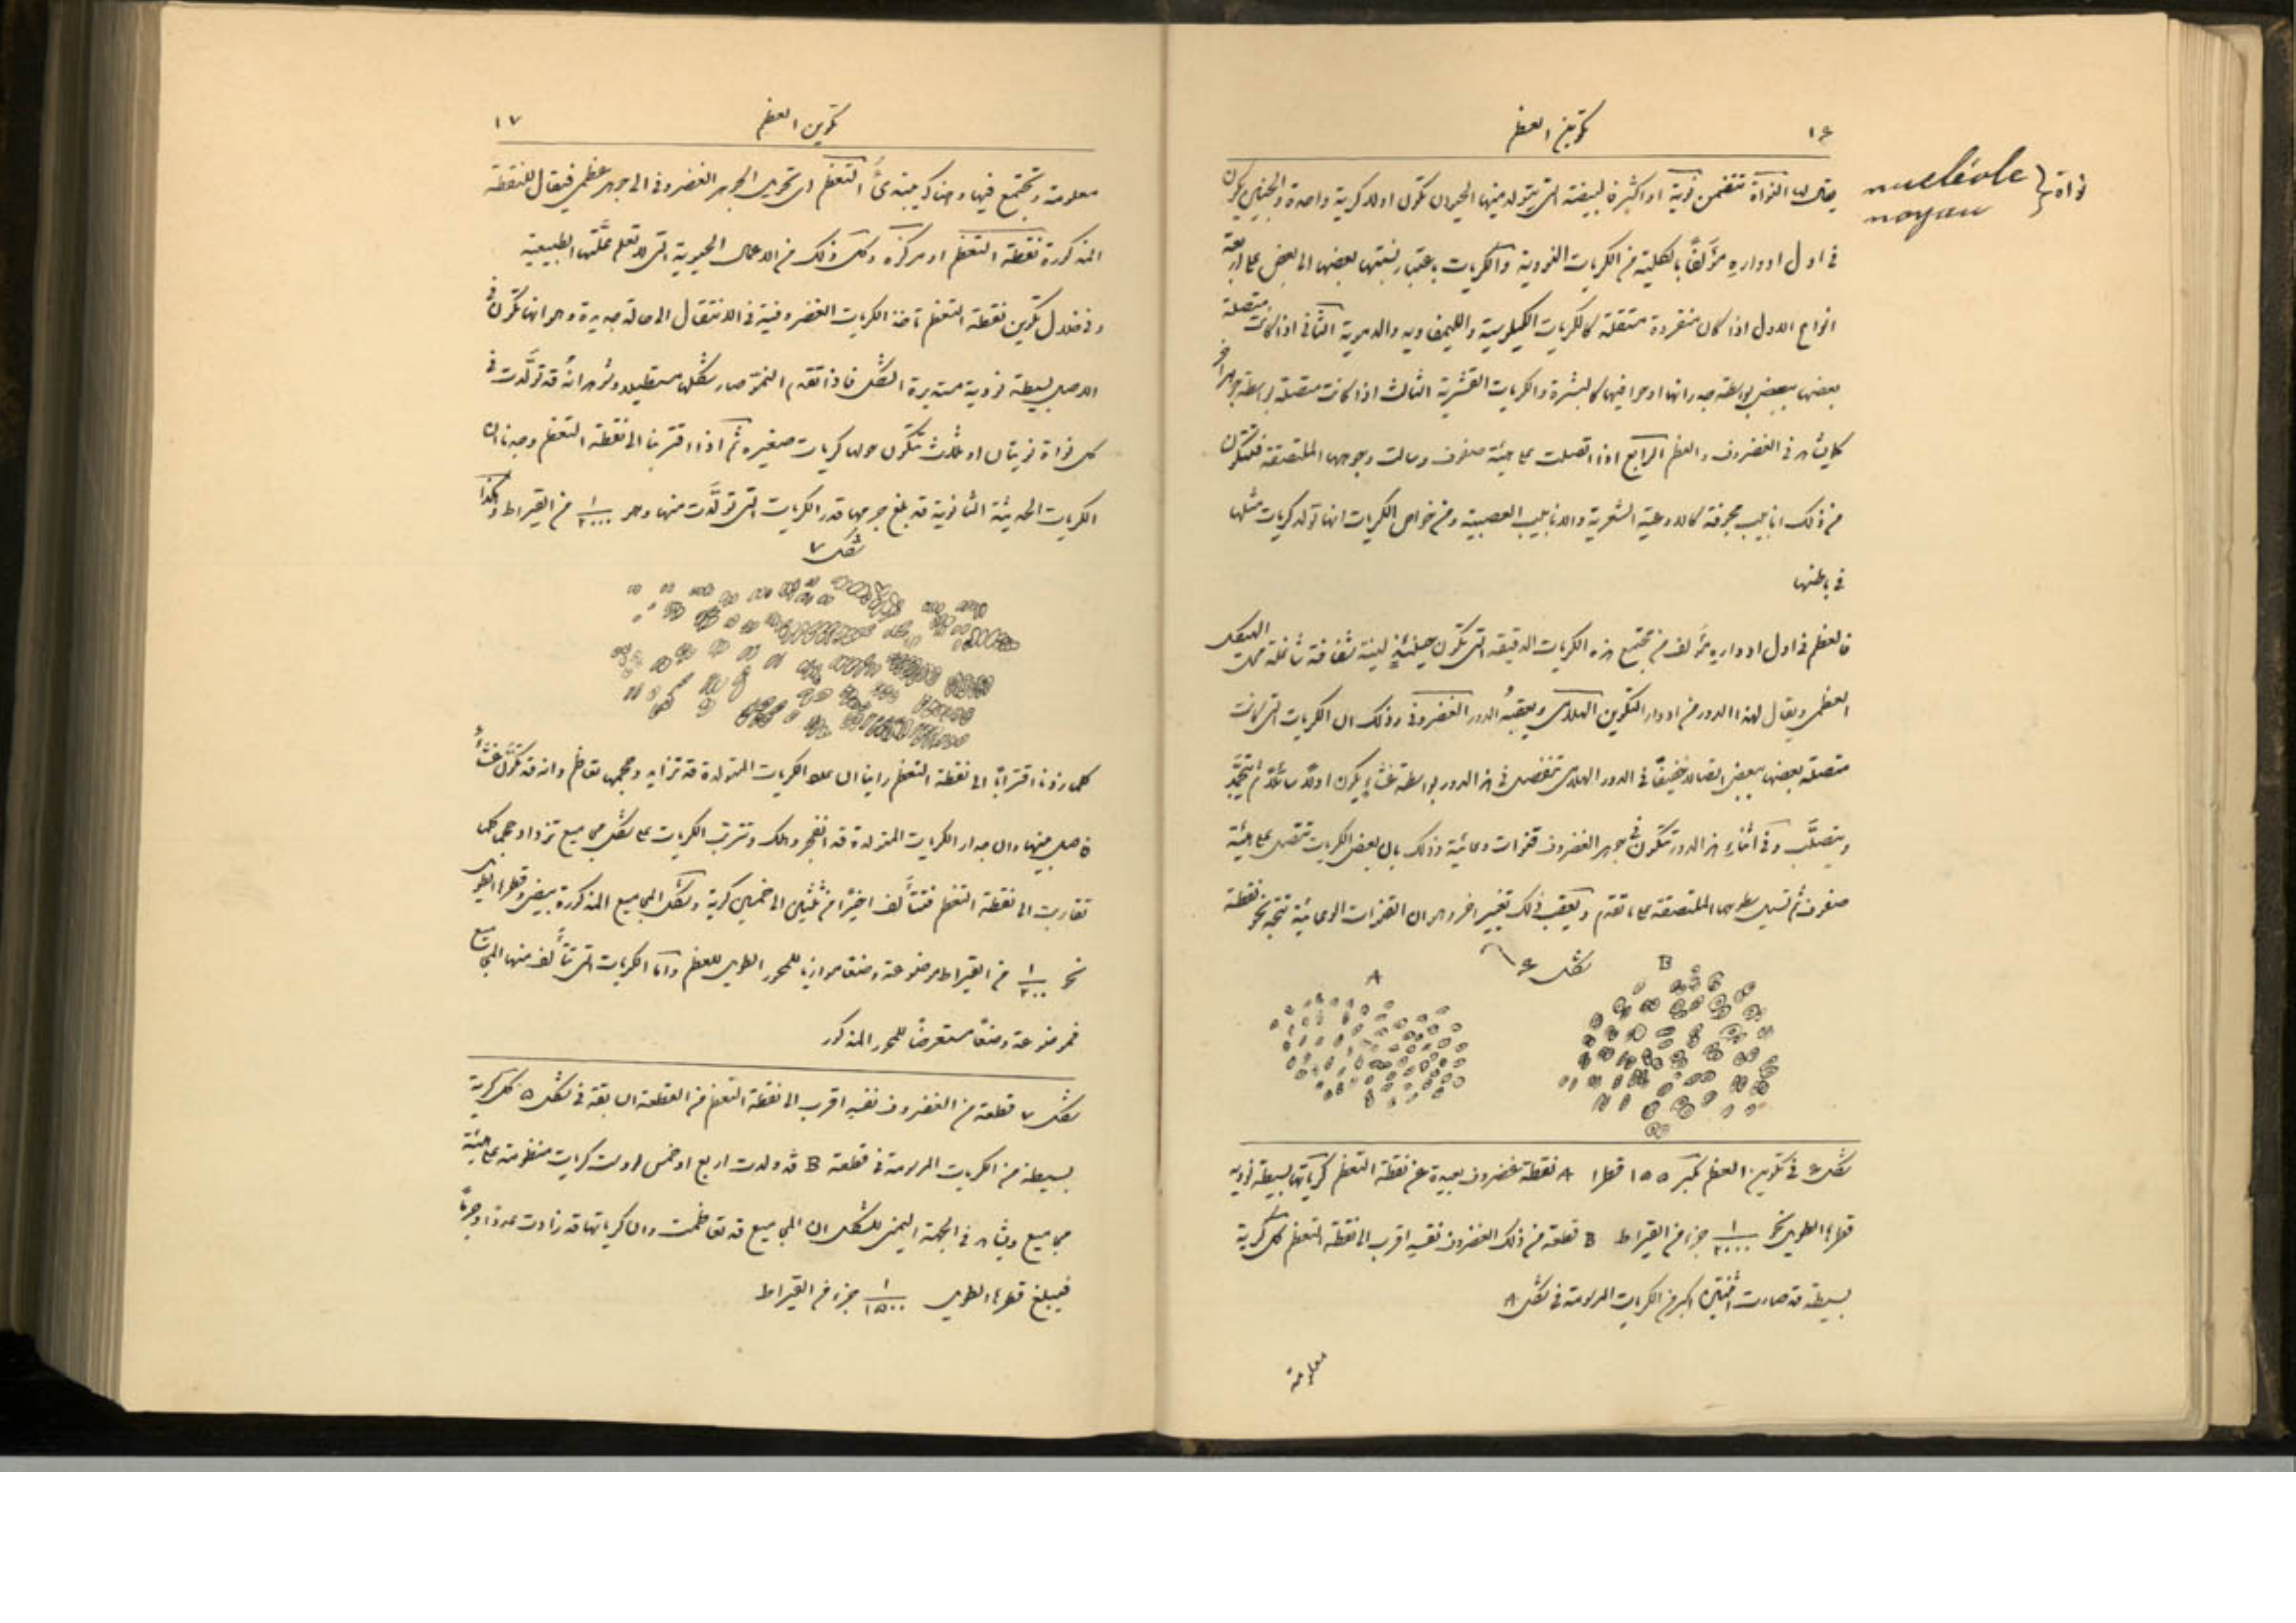 ١٦
تكوين العظم
nucléole
noyau
نواة
يقال لها النواة تتضمن نوية او اكثر فالبيضة التي يتولد منها الحيوان تكون اولا كرية واحدة والجنين يكون
في اول ادواره مؤلفًا بالكلية من الكريات النووية والكريات باعتبار نسبتها بعضها الى بعض على اربعة
انواع الاول اذا كان منفردة مستقلة كالكريات الكيلوسية والليمفاويه والدموية الثاني اذا كانت متصلة
بعضها ببعض بواسطة جدرانها او حوافيها كالبشرة والكريات القشرية الثالث اذا كانت متصلة بواسطة جوهر اخر
كما يشاهد في الغضروف والعظم الرابع اذا اتصلت على هيئة صفوف وسالت وجوهها الملتصقة فتتكون
من ذلك انابيب مجوفة كالاوعية الشعرية والانابيب العصبية ومن خواص الكريات انها تولد كريات مثلها
في باطنها
فالعظم في اول ادواره مؤلف من مجتمع هذه الكريات الدقيقة التي تكون حينئذٍ لينة شفافة شاغلة محل الهيكل
العظمي ويقال لهذا الدور من ادوار التكوين الهلامي ويعقبهُ الدور الغضروفي وذلك ان الكريات التي كانت
متصلة بعضها ببعض اتصالا خفيفًا في الدور الهلامي تنفصل في هذا الدور بواسطة غشاءٍ يكون اولًا سائلًا ثم يتجمد
ويتصلَّب وفي اثناء هذا الدور تتكون في جوهر الغضروف قنوات وعائية وذلك بان بعض الكريات تتصل على هيئة
صفوف ثم تسيل سطوحها الملتصقة على ما تقدم ويعقب ذلك تغيير اخر وهو ان القنوات الوعائية تتجه نحو نقطة
شكل ٦
A
B
شكل ٦ في تكوين العظم مكبر ١٥٥ قطرا A نقطة غضروف بعيدة عن نقطة التعظم كرياتها بسيطة نووية
قطرها الطويل نحو ١/٢٠٠٠ جزء من القيراط B قطعة من ذلك الغضروف نفسه اقرب الى نقطة التعظم كل كرية
بسيطة قد صارت اثنتين اكبر من الكريات المرسومة في شكل A
معلومة
تكوين العظم
١٧
معلومة وتجتمع فيها وهناك يبتدئُ التعظم اي تحويل الجوهر الغضروفي الى جوهر عظمي فيقال للنقطة
المذكورة نقطة التعظم او مركزه وكل ذلك من الاعمال الحيوية التي لا تعلم علّتها الطبيعية
وفي خلال تكوين نقطة التعظم تاخذ الكريات الغضروفية في الانتقال الى حالة جديدة وهو انها تكون في
الاصل بسيطة نووية مستديرة الشكل فاذا تقدم النمو صار شكلها مستطيلا وشوهد انهُ قد تولَّدت في
كل نواة نويتان او ثلاث تتكون حولها كريات صغيرة ثم اذا اقتربنا الى نقطة التعظم وجدنا ان
الكريات الحديثة الثانوية قد بلغ جرمها قدر الكريات التي تولَّدت منها وهو ١/٢٠٠٠ من القيراط وهكذا
شكل ٧
كلما زدنا اقترابًا الى نقطة التعظم راينا ان عدد الكريات المتولدة قد تزايد وحجمها تعاظم وانه قد تكوَّن غشاءٌ
فاصل بينها وان جدار الكريات المتولدة قد انفجر وهلك وتترتب الكريات على شكل مجاميع تزداد حجما كلما
تقاربت الى نقطة التعظم فتتألف اخيرًا من ثلثين الى خمسين كرية وشكل المجاميع المذكورة بيضي وقطرها الطويل
نحو ١/٢٠٠ من القيراط موضوعة وضعًا موازيا للمحور الطويل للعظم واما الكريات التي تتألف منها المجاميع
فموضوعة وضعًا مستعرضًا للمحور المذكور
شكل ٧ قطعة من الغضروف نفسه اقرب الى نقطة التعظم من القطعة السابقة في شكل ٥ كل كرية
بسيطة من الكريات المرسومة في قطعة B قد ولدت اربع او خمس او ست كريات منظومة على هيئة
مجاميع ويشاهد في الجهة اليمنى للشكل ان المجاميع قد تعاظمت وان كرياتها قد زادت عددا وجرمًا
فيبلغ قطرها الطويل ١/١٥٠٠ جزء من القيراط